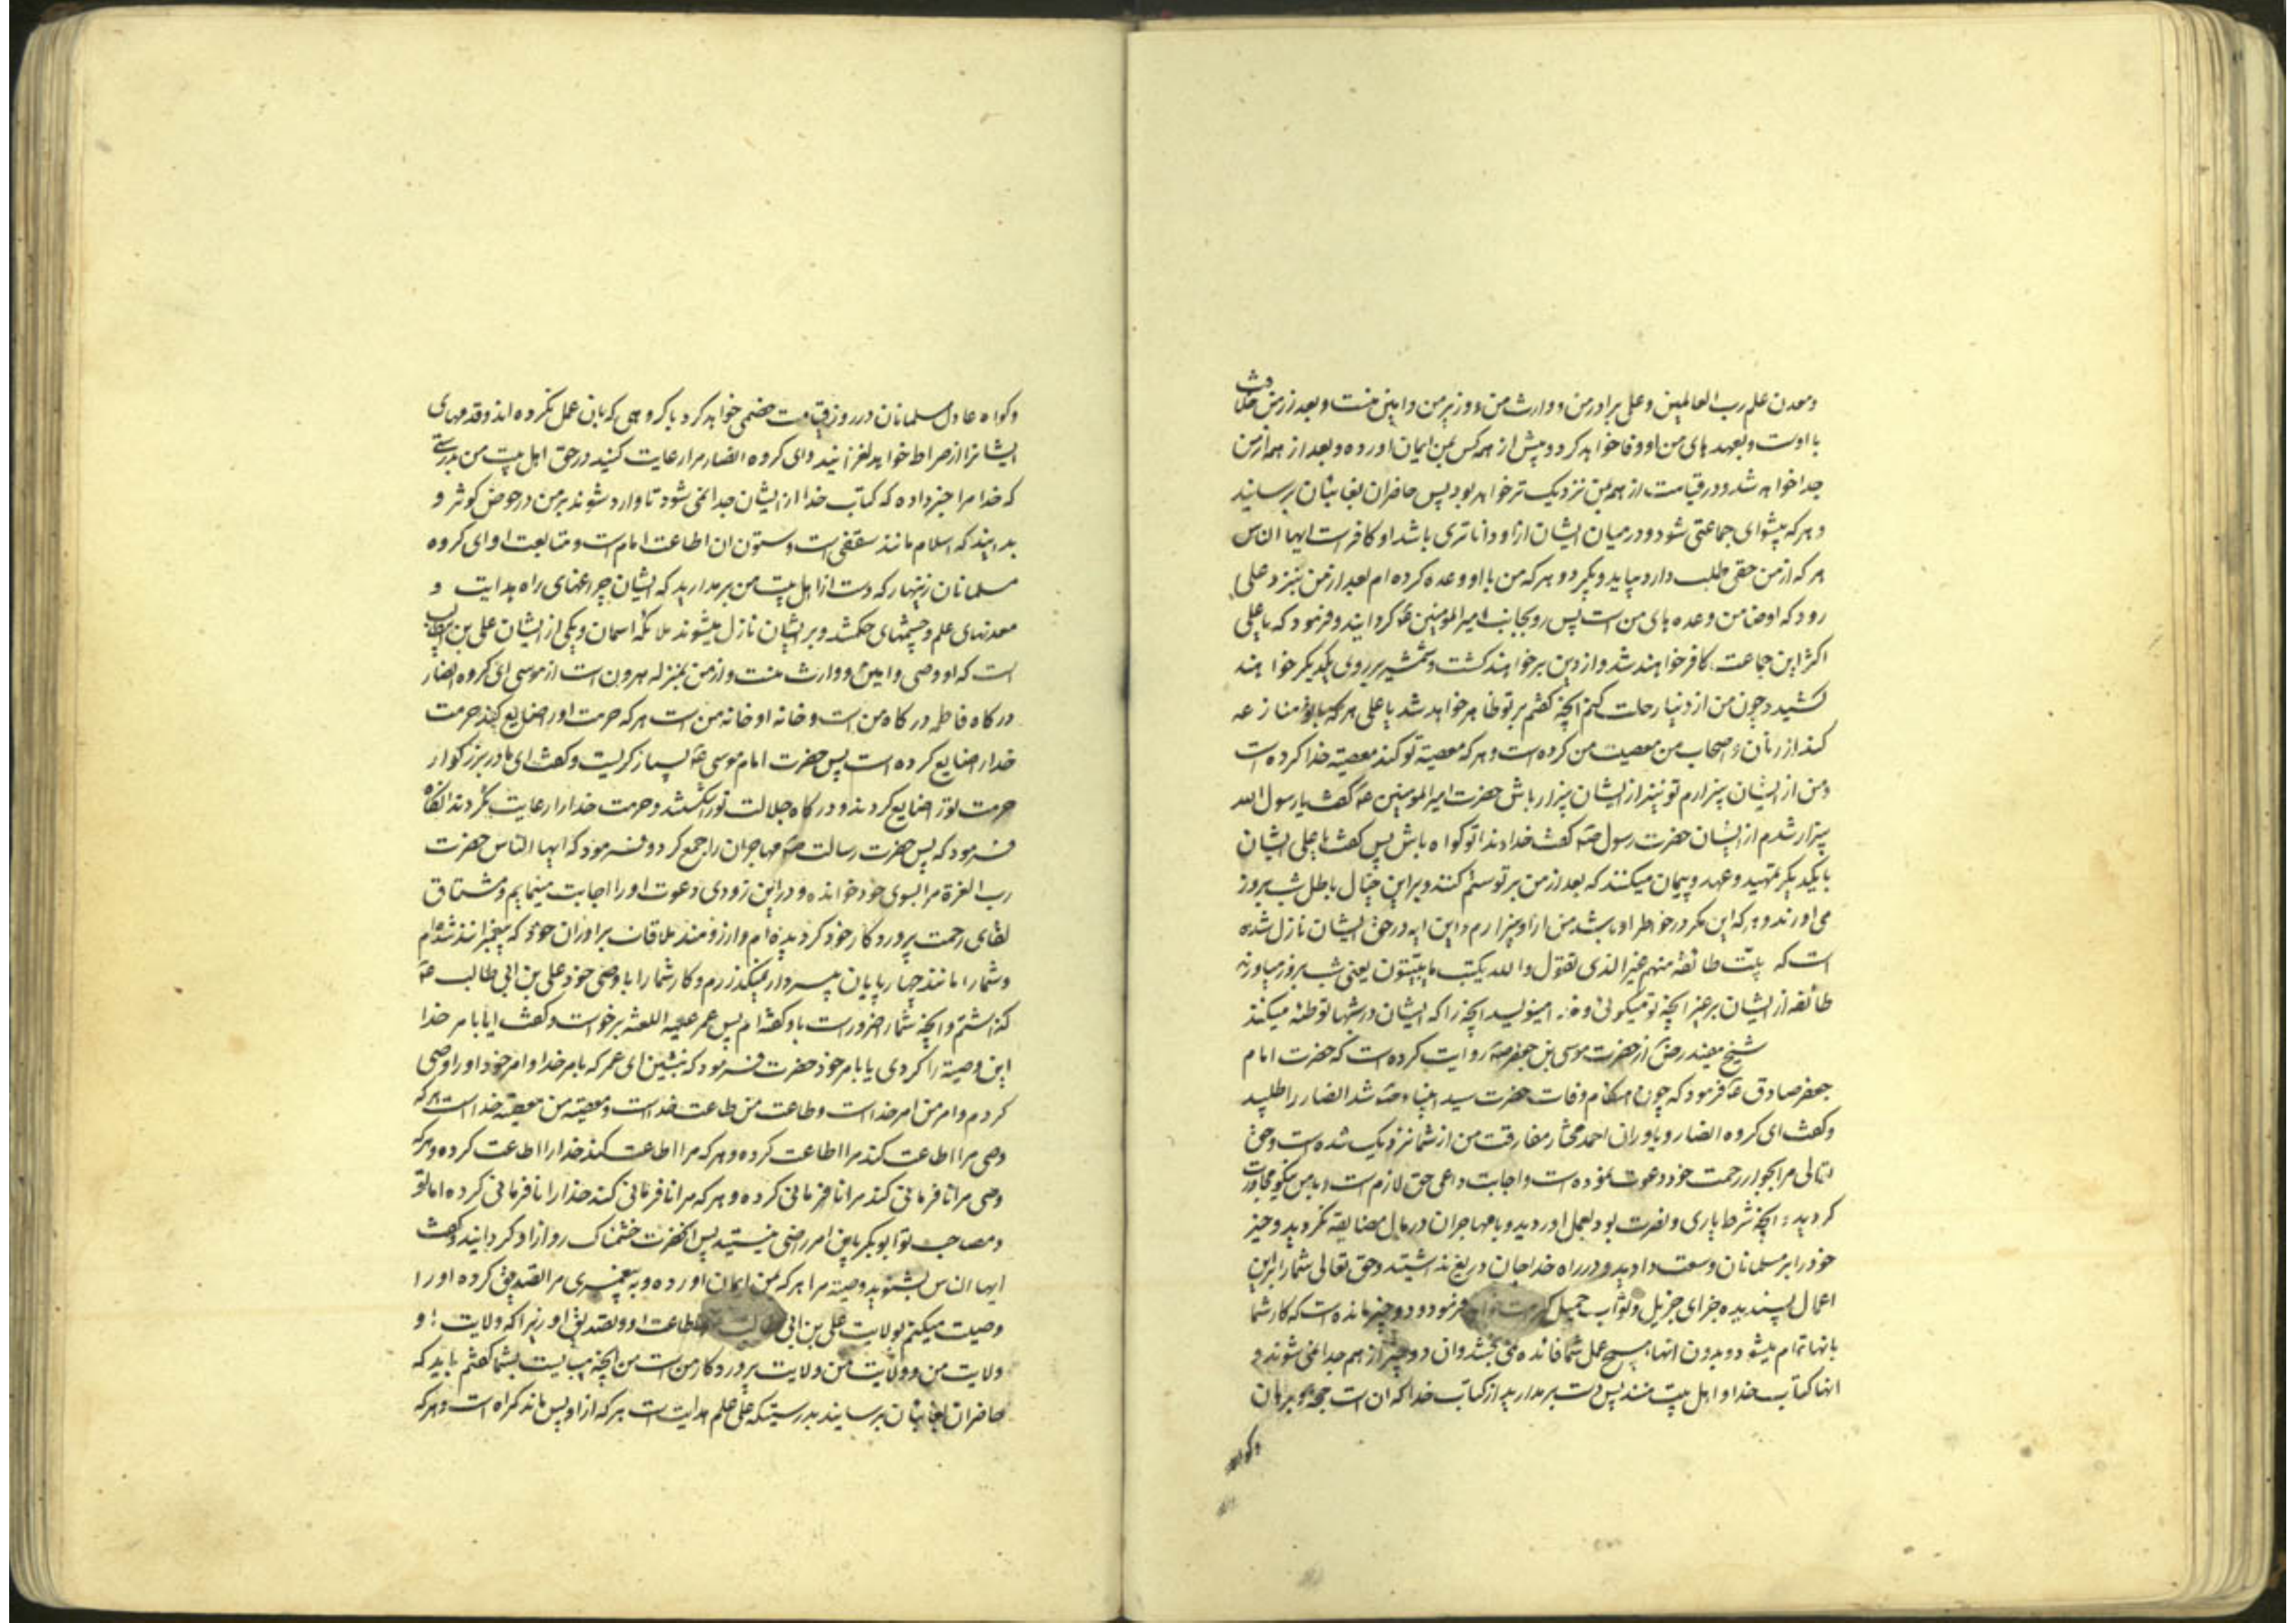 ومعدن علم رب العالمین وعلی برادر من ووارث من ووزیر من وامین منست وبعد از من خلافت
با اوست وبعهدهای من او وفا خواهد کرد وپیش از همه کس بمن ایمان اورده وبعد از همه از من
جدا خواهد شد ودر قیامت از همه بمن نزدیک تر خواهد بود پس حاضران بغایبان برسانند
وهر که پیشوای جماعتی شود ودر میان ایشان از او داناتری باشد او کافر است ایها الناس
هر که از من حقی طلب دارد بیاید وبگیرد وهر که من با او وعده کرده ام بعد از من بنزد علی
رود که او ضامن وعده های من است پس رو بجانب امیر المومنین ع کردانید وفرمود که یا علی
اکثر این جماعت کافر خواهند شد واز دین بر خواهند کشت وشمشیر بر روی یکدیکر خواهند
کشید وچون من از دنیا رحلت کنم انچه کفتم بر تو ظاهر خواهد شد یا علی هر که با تو منازعه
کند از زنان واصحاب من معصیت من کرده است وهر که معصیة تو کند معصیة خدا کرده است
ومن از ایشان بیزارم تو نیز از ایشان بیزار باش حضرت امیر المومنین ع کفت یا رسول الله
بیزار شدم از ایشان حضرت رسول ص کفت خداوندا تو کواه باش پس کفت یا علی ایشان
با یکدیکر تمهید وعهد وپیمان میکنند که بعد از من بر تو ستم کنند وبر این خیال باطل شب بروز
می اورند وهر که این مکر در خواطر او باشد من از او بیزارم واین ایه در حق ایشان نازل شده
است که بیّت طائفة منهم غیر الذی تقول والله یکتب ما یبیتون یعنی شب بروز میاورند
طائفه از ایشان بر غیر انچه تو میکوئی وخدا مینویسد انچه را که ایشان در شبها توطئه میکنند
شیخ مفید رض از حضرت موسی بن جعفر ع روایت کرده است که حضرت امام
جعفر صادق ع فرمود که چون هنکام وفات حضرت سید انبیاء ص شد انصار را طلبید
وکفت ای کروه انصار ویاوران احمد مختار مفارقت من از شما نزدیک شده است وحق
تعالی مرا بجوار رحمت خود دعوت نموده است واجابت داعی حق لازم است وبا من نیکو مجاورت
کردید وانچه شرط یاری ونصرت بود بعمل اوردید وبا مهاجران در مال مضایقه نکردید وچیز
خود را بر مسلمانان وسعت دادید ودر راه خدا جان دریغ نداشتید وحق تعالی شما را بر این
اعمال پسندیده جزای جزیل وثواب جمیل کرامت خواهد فرمود ودو چیز مانده است که کار شما
بانها تمام میشود وبدون انها هیچ عمل شما فائده نمی بخشد وان دو چیز از هم جدا نمی شوند و
انها کتاب خدا واهل بیت منند پس دست بر مدارید از کتاب خدا که ان است حجة وبرهان
وکواه
وکواه عادل مسلمانان در روز قیامت خصمی خواهد کرد با کروهی که بان عمل نکرده اند وقدمهای
ایشانرا از صراط خواهد لغزانید وای کروه انصار مرا رعایت کنید در حق اهل بیت من بدرستی
که خدا مرا خبر داده که کتاب خدا از ایشان جدا نمی شود تا وارد شوند بر من در حوض کوثر و
بدانید که اسلام مانند سقفی است وستون ان اطاعت امام است ومتابعت او ای کروه
مسلمانان زینهار که دست از اهل بیت من بر مدارید که ایشان چراغهای راه هدایت و
معدنهای علم وچشمهای حکمتند وبر ایشان نازل میشوند ملائکه اسمان ویکی از ایشان علی بن ابیطالب
است که او وصی وامین ووارث منست واز من بمنزله هرون است از موسی ای کروه انصار
درکاه فاطمه درکاه من است وخانه او خانه من است هر که حرمت او را ضایع کند حرمت
خدا را ضایع کرده است پس حضرت امام موسی ع بسیار کریست وکفت ای مادر بزرکوار
حرمت تو را ضایع کردند ودرکاه جلالت تو را شکستند وحرمت خدا را رعایت نکردند انکاه
فرمود که پس حضرت رسالت ص مهاجران را جمع کرد وفرمود که ایها الناس حضرت
رب العزة مرا بسوی خود خوانده ودر این زودی دعوت او را اجابت مینمایم ومشتاق
لقای رحمت پروردکار خود کردیده ام وارزومند ملاقات برادران خود که پیغمبرانند شده ام
وشما را مانند چهارپایان بیسردار نمیکذارم وکار شما را با وصی خود علی بن ابی طالب ع
کذاشتم وانچه شما را ضرور است باو کفته ام پس عمر علیه اللعنه برخواست وکفت ایا بامر خدا
این وصیة را کردی یا بامر خود حضرت فرمود که بنشین ای عمر که بامر خدا وامر خود او را وصی
کردم وامر من امر خداست وطاعت من طاعت خداست ومعصیة من معصیة خداست هر که
وصی مرا اطاعت کند مرا اطاعت کرده وهر که مرا اطاعت کند خدا را اطاعت کرده وهر که
وصی مرا نافرمانی کند مرا نافرمانی کرده وهر که مرا نافرمانی کند خدا را نافرمانی کرده اما تو
ومصاحب تو ابوبکر باین امر راضی نیستید پس انحضرت خشمناک رو از او کردانید وکفت
ایها الناس بشنوید وصیة مرا هر که بمن ایمان اورده وبه پیغمبری مرا تصدیق کرده او را
وصیت میکنم بولایت علی بن ابی طالب واطاعت او وتصدیق او زیرا که ولایت او
ولایت من وولایت من ولایت پروردکار من است من انچه میبایست بشما کفتم باید که
حاضران بغایبان برسانند بدرستیکه علی علم هدایت است هر که از او پس ماند کمراه است وهر که